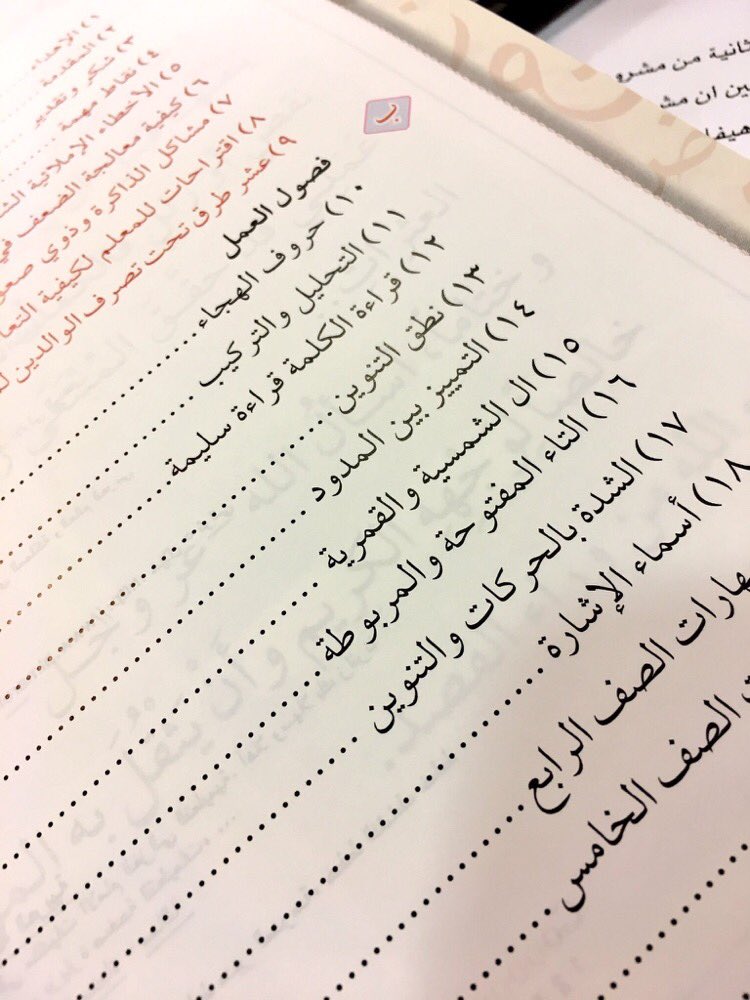 ب
١) الإهداء
٢) المقدمة
٣) شكر وتقدير
٤) نقاط مهمة
٥) الأخطاء الإملائية
٦) كيفية معالجة الضعف في
٧) مشاكل الذاكرة وذوي
٨) اقتراحات للمعلم لكيفية
٩) عشر طرق تحت تصرف الوالدين
فصول العمل
١٠) حروف الهجاء
١١) التحليل والتركيب
١٢) قراءة الكلمة قراءة سليمة
١٣) نطق التنوين
١٤) التمييز بين المدود
١٥) ال الشمسية والقمرية
١٦) التاء المفتوحة والمربوطة
١٧) الشدة بالحركات والتنوين
١٨) أسماء الإشارة
هارات الصف الرابع
الصف الخامس
ثانية من مشرو
ين ان مش
هيفا